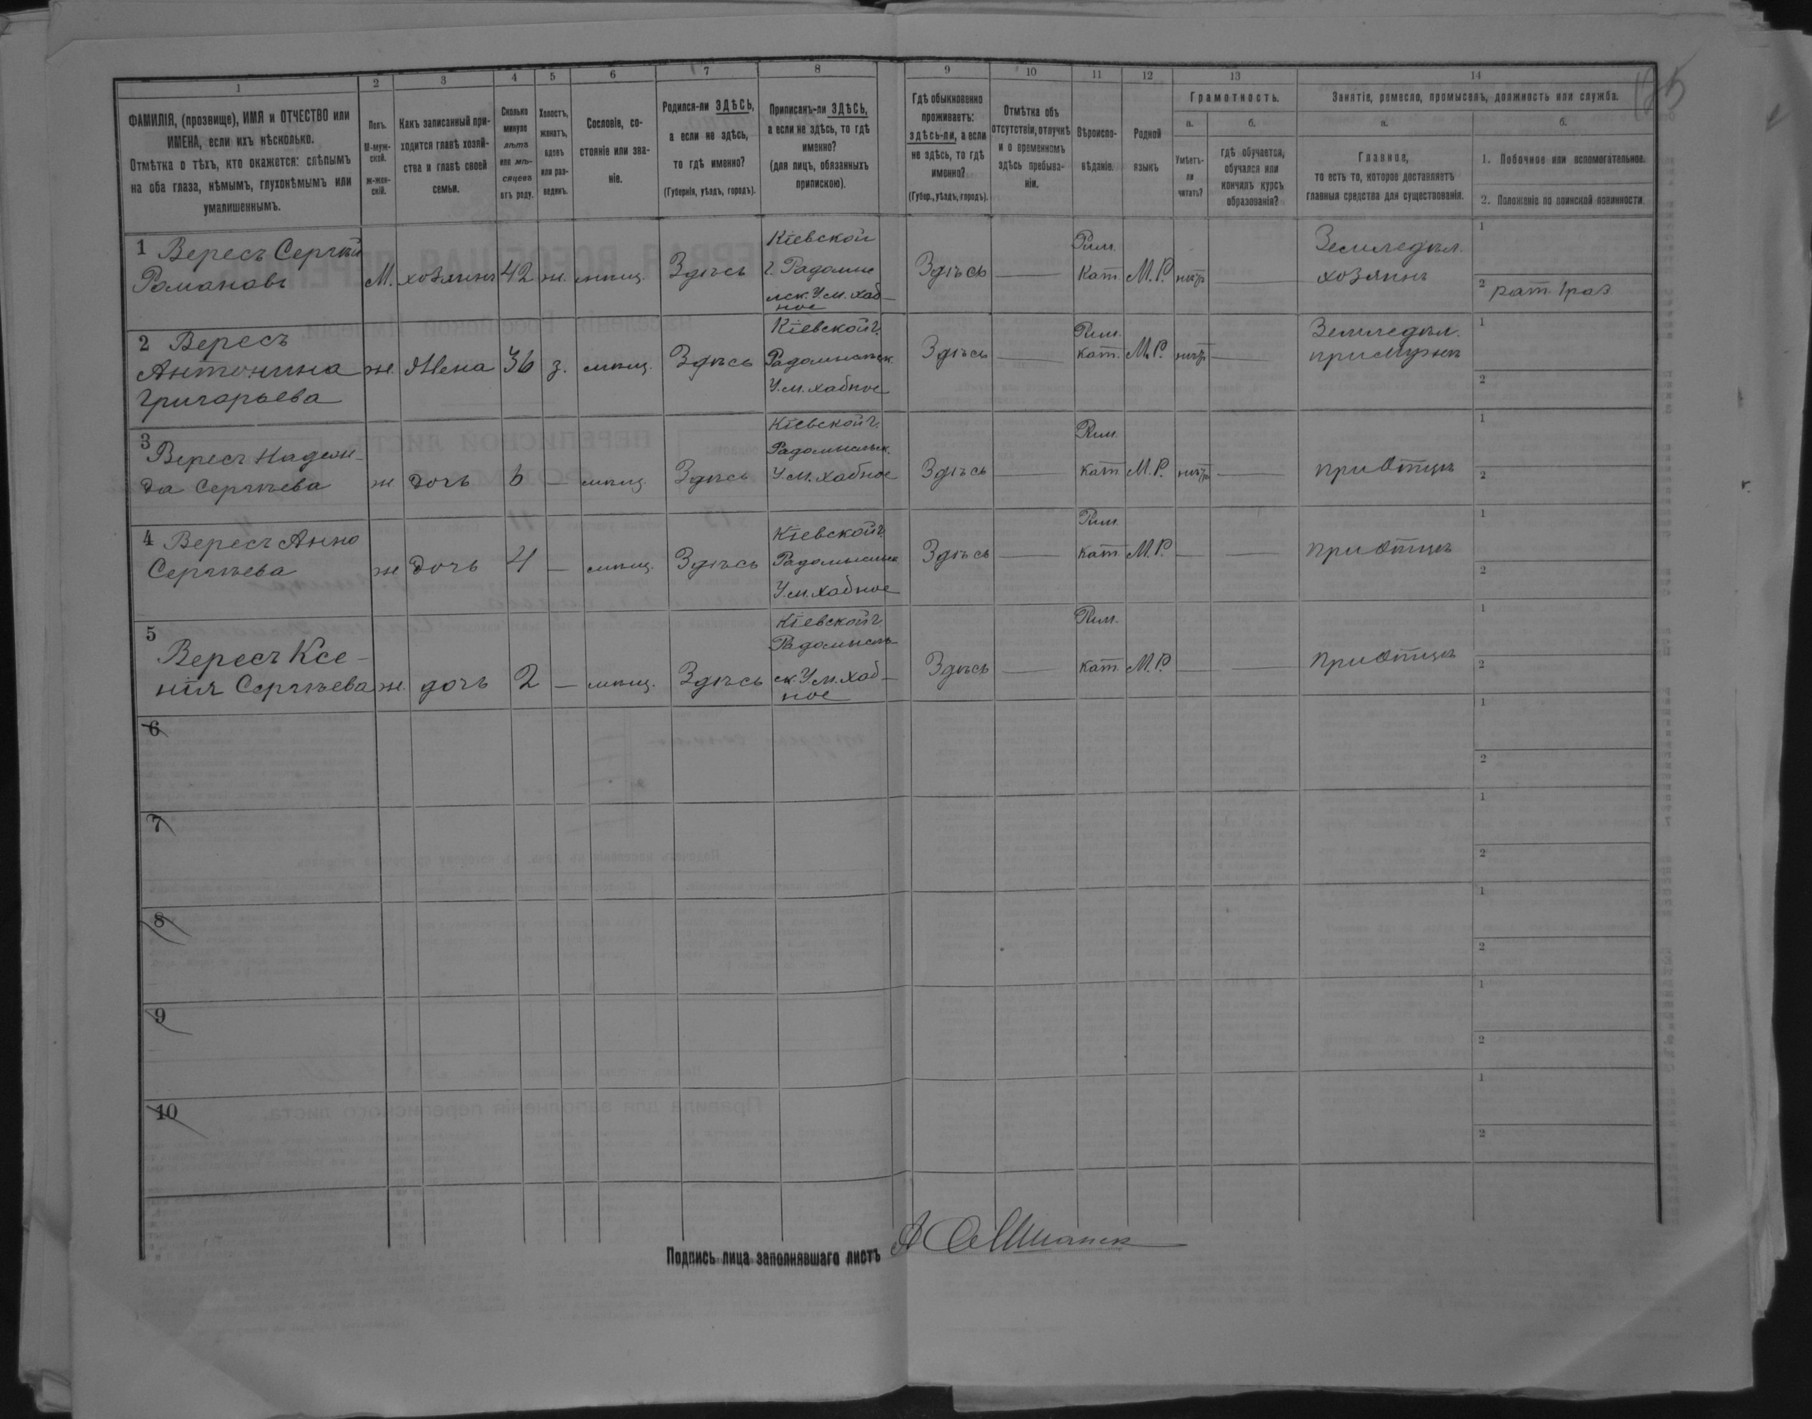 1 2 3 4 5 6 7 8 9 10 11 12 13 14
ФАМИЛІЯ, (прозвище), ИМЯ и ОТЧЕСТВО или
ИМЕНА, если ихъ нѣсколько.
Отмѣтка о тѣхъ, кто окажется: слѣпымъ
на оба глаза, нѣмымъ, глухонѣмымъ или
умалишеннымъ.
Полъ.
М-муж-
ской.
ж-жен-
скій.
Какъ записанный при-
ходится главѣ хозяй-
ства и главѣ своей
семьи.
Сколько
минуло
лѣтъ
или мѣ-
сяцевъ
отъ роду.
Холостъ,
женатъ,
вдовъ
или раз-
веденъ.
Сословіе, со-
стояніе или зва-
ніе.
Родился-ли ЗДѢСЬ,
а если не здѣсь,
то гдѣ именно?
(Губернія, уѣздъ, городъ).
Приписанъ-ли ЗДѢСЬ,
а если не здѣсь, то гдѣ
именно?
(для лицъ, обязанныхъ
припискою).
Гдѣ обыкновенно
проживаетъ:
здѣсь-ли, а если
не здѣсь, то гдѣ
именно?
(Губер., уѣздъ, городъ).
Отмѣтка объ
отсутствіи, отлучкѣ
и о временномъ
здѣсь пребыва-
ніи.
Вѣроиспо-
вѣданіе.
Родной
языкъ
Грамотность.
а.
Умѣетъ-
ли
читать?
б.
гдѣ обучается,
обучался или
кончилъ курсъ
образованія?
Занятіе, ремесло, промыселъ, должность или служба.
а.
Главное,
то есть то, которое доставляетъ
главныя средства для существованія.
б.
1. Побочное или вспомогательное.
2. Положеніе по воинской повинности.
1 Вересъ Сергѣй
Романовъ
М. хозяинъ 42 ж. мѣщ. Здѣсь
Кіевской
г. Радомы
сльск. У. м. Хаб-
ное
Здѣсь
Рим.
Кат М.Р. нѣтъ
Земледѣл.
хозяинъ
1
2 рат. 1 раз
2 Вересъ
Антонина
Григорьева
ж. Жена 36 з. мѣщ. Здѣсь
Кіевской г.
Радомысльск.
У. м. Хабное
Здѣсь
Рим.
кат М.Р. нѣтъ
Земледѣл.
при мужѣ
1
2
3 Вересъ Надеж-
да Сергѣева
ж дочь 6 — мѣщ. Здѣсь
Кіевской г.
Радомысльск.
У. м. Хабное
Здѣсь
Рим.
кат М.Р. нѣтъ
при Отцѣ
1
2
4 Вересъ Анна
Сергѣева
ж дочь 4 — мѣщ. Здѣсь
Кіевской г.
Радомысльск
У. м. Хабное
Здѣсь
Рим.
кат М.Р. —
при Отцѣ
1
2
5
Вересъ Ксе-
нія Сергѣева
ж. дочь 2 — мѣщ. Здѣсь
Кіевской г.
Радомысль
ск. У. м. Хаб-
ное
Здѣсь
Рим.
кат М.Р. —
при Отцѣ
1
2
6
1
2
7
1
2
8
1
2
9
1
2
10
1
2
Подпись лица заполнявшаго листъ